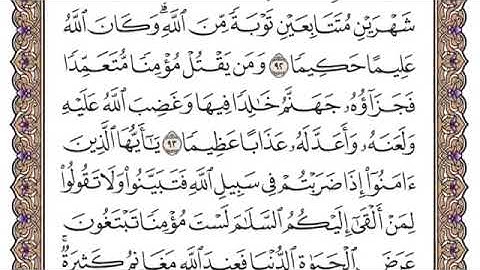 شَهْرَيْنِ مُتَتَابِعَيْنِ تَوْبَةً مِّنَ ٱللَّهِۗ وَكَانَ ٱللَّهُ
عَلِيمًا حَكِيمًا ٩٢ وَمَن يَقْتُلْ مُؤْمِنًا مُّتَعَمِّدًا
فَجَزَآؤُهُۥ جَهَنَّمُ خَٰلِدًا فِيهَا وَغَضِبَ ٱللَّهُ عَلَيْهِ
وَلَعَنَهُۥ وَأَعَدَّ لَهُۥ عَذَابًا عَظِيمًا ٩٣ يَٰٓأَيُّهَا ٱلَّذِينَ
ءَامَنُوٓا۟ إِذَا ضَرَبْتُمْ فِى سَبِيلِ ٱللَّهِ فَتَبَيَّنُوا۟ وَلَا تَقُولُوا۟
لِمَنْ أَلْقَىٰٓ إِلَيْكُمُ ٱلسَّلَٰمَ لَسْتَ مُؤْمِنًا تَبْتَغُونَ
عَرَضَ ٱلْحَيَوٰةِ ٱلدُّنْيَا فَعِندَ ٱللَّهِ مَغَانِمُ كَثِيرَةٌۚ